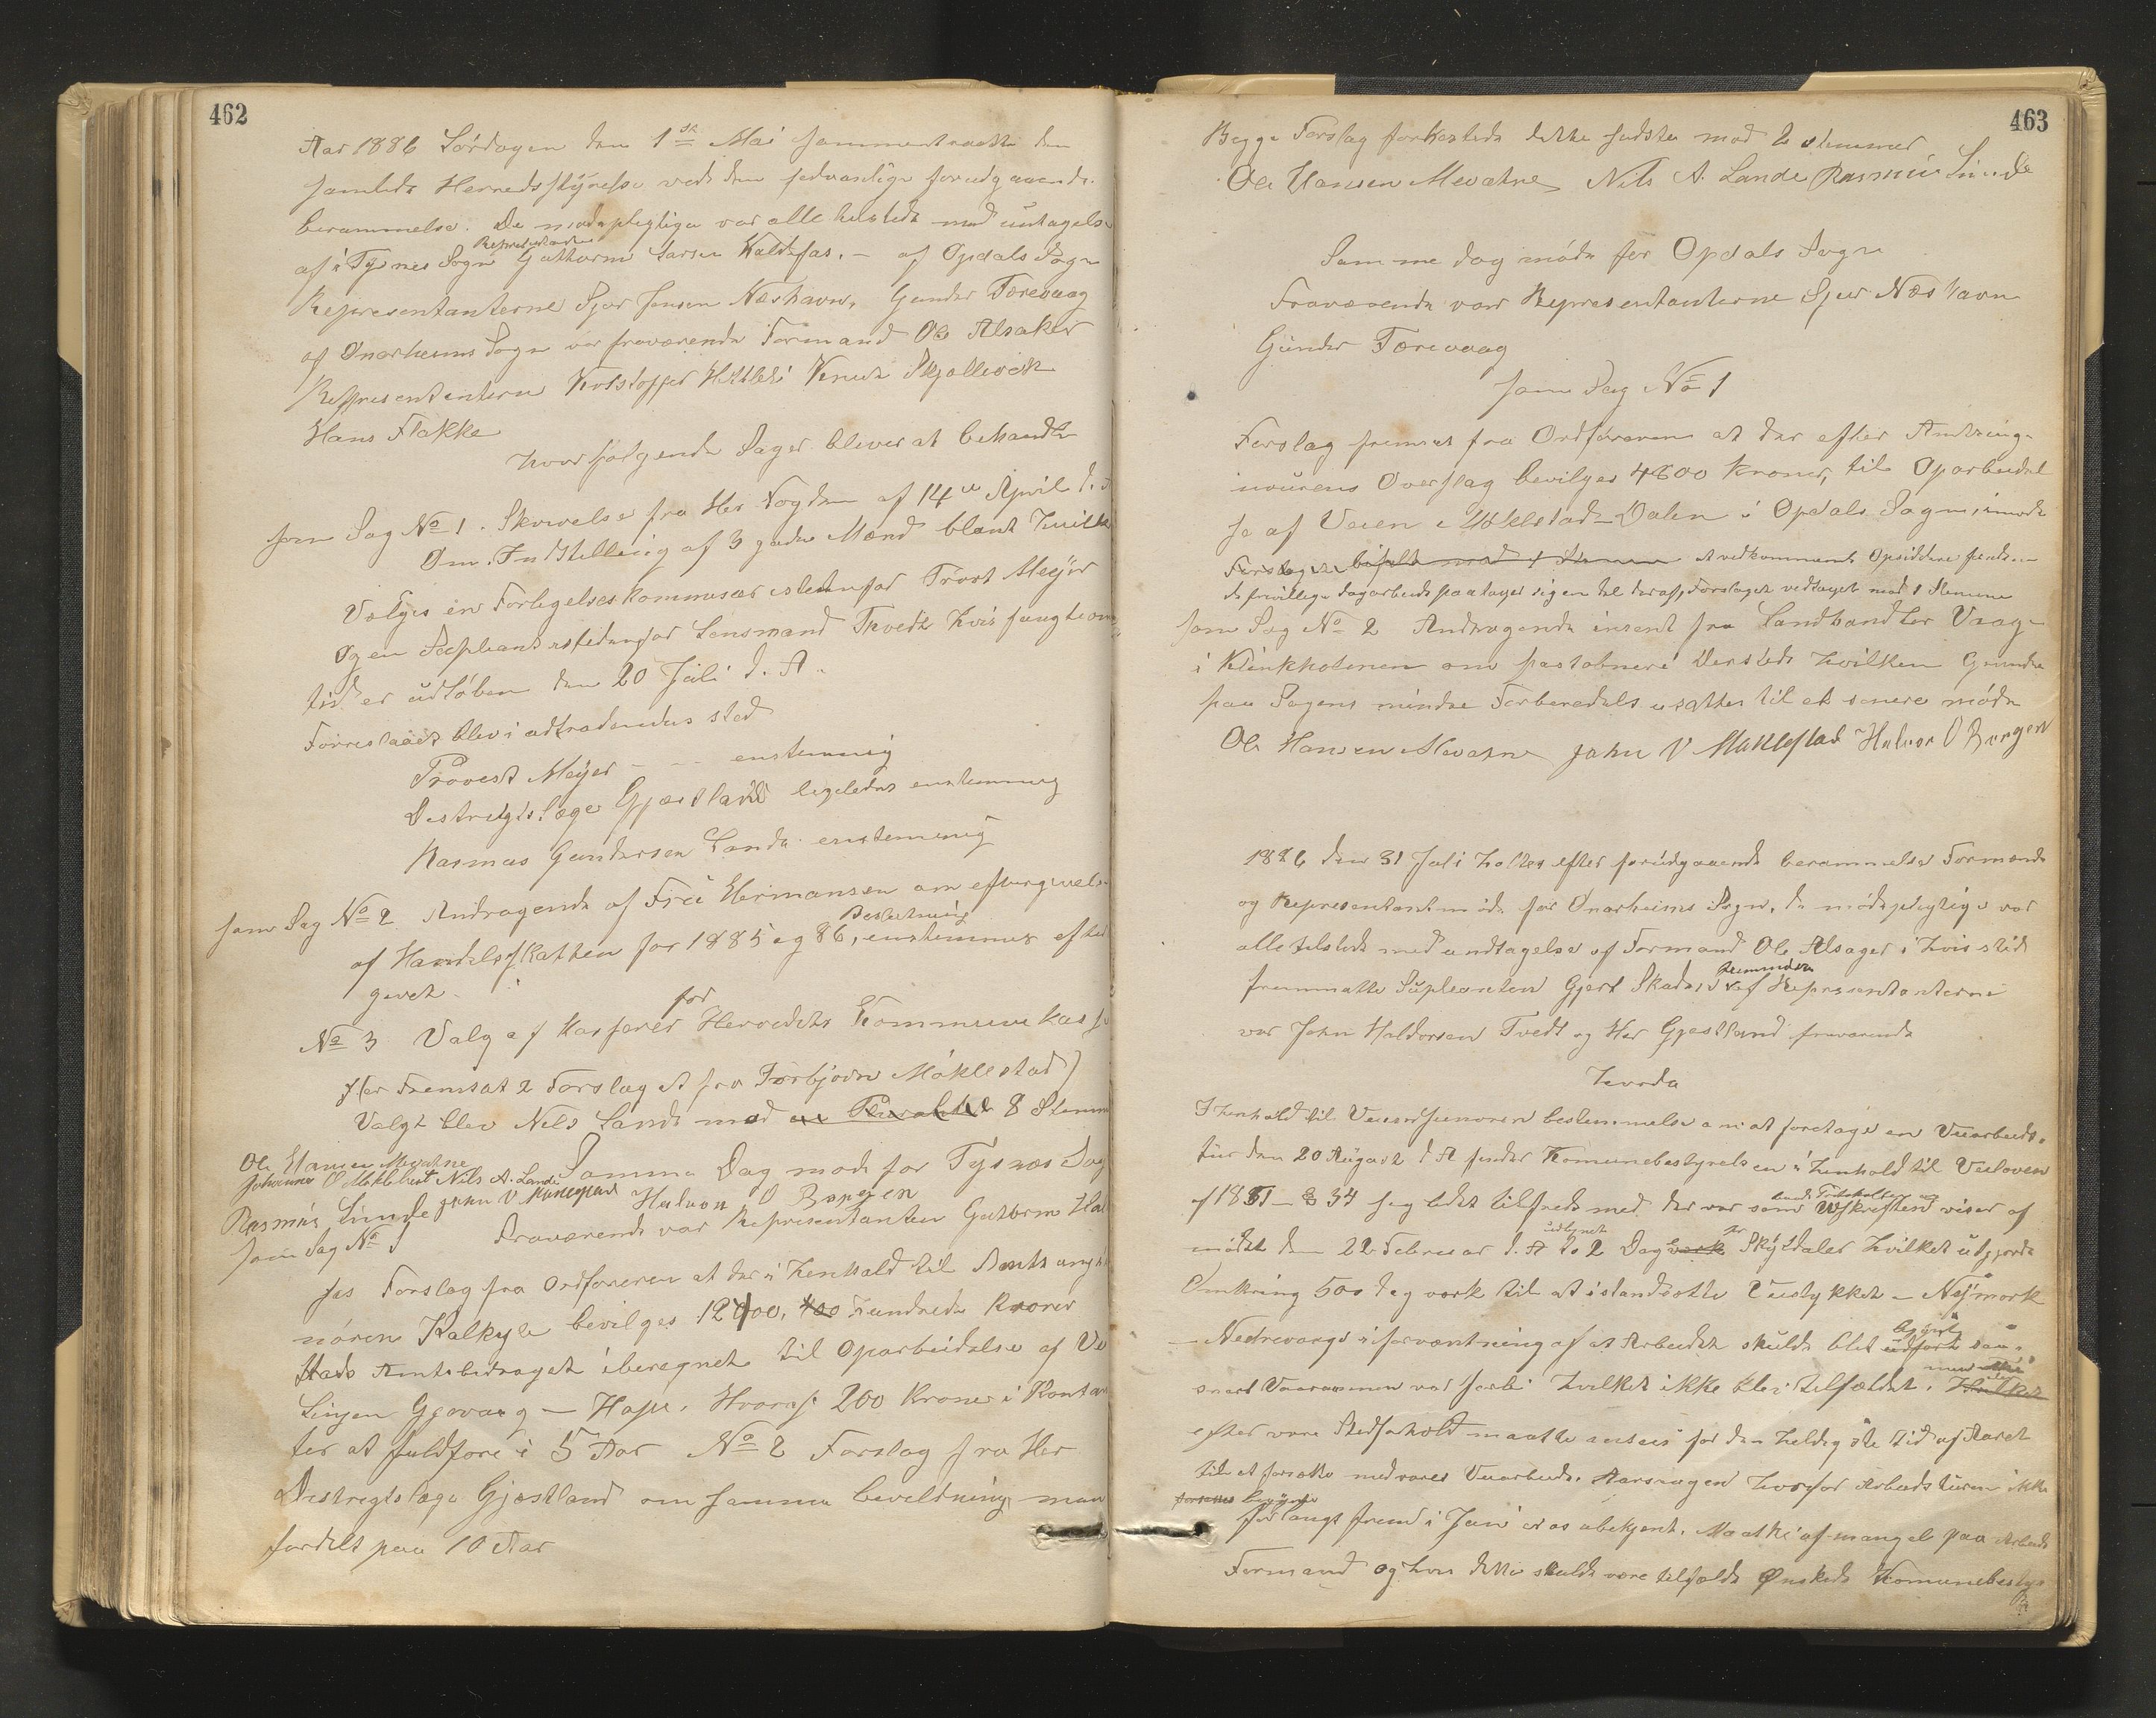 462
Aar 1886 Lördagen den 1ste Mai sammentraatte den
samlede Herredsstyrelse ved den sedvanlige forudgaaende
berammelse. De mødepligtige var alle tilstede med undtagelse
af i Tysnes Sogn Representanten Guthorm Larsen Kaldefos. – af Opdals Sogn
Representanterne Sjur Jensen Neshavn, Gunder Forevaag
af Onarheims Sogn var fraværende Formand Ole Alsaker
Representanterne Kristoffer Knud Skjollevik
Hans Flakke
hvor følgende Sager blever at behandle
som Sag No 1. Skrivelse fra Her Fogden af 14de April d. A
Om Indstilling af 3 gode Mænd blant hvilke
Vælges en Forligelseskommisær istedenfor Provst Meyer
Og en Supleant istedenfor Lensmand Tvedt hvis fungtions
tid er udløben den 20 Juli d. A.
Forreslaaet blev i udtrædendes sted
Provest Meyer - - - enstemmig
Destrigtslæge Gjæstland ligeledes enstemmig
Rasmus Gundersen Lande enstemmig
som Sag No 2 Andragende af Frü Hermansen om eftergivelse
af Handelsskatten for 1885 og 86, Beslutning enstemmes efter
givet.
No 3 Valg af Kasserer for Herredets Kommunekasse
Her Fremsat 2 Forslag et fra Torbjorn Möklestad)
Valgt blev Nils Lande med 8 Stemmer
Ole Hansen Mevatne
Johannes O Mekletveit Nils A. Lande
Samme Dag møde for Tysnæs Sog
Rasmüs Linde John V Möklestad Halvor O Borgen
Fraværende var Representanten Gutborm Kal
som Sag No 1
Jes Forslag fra Ordføreren at der i Henhold til Amtsinge
niøren Kalkyle bevilges 12400, 400 Hundrede Kroner
Stads Amtsbidraget iberegnet til Oparbeidelse af Ve
Linjen Gjovaag – Hope. Hvoraf 200 Kroner i Kontan
ter at fuldføre i 5 Aar No 2 Forslag fra Her
Destrigtslæge Gjæstland om samme bevilgning men
fordelt paa 10 Aar
463
Begge Forslag forkastede dette sidste mod 2 stemmer
Ole Hansen Mevatne Nils A. Lande Rasmüs Linde
Samme dag møde for Opdals Sogn
Fraværende var Representanterne Sjur Neshavn
Gunder Forevaag
som Sag No 1
Forslag fremsat fra Ordføreren at der efter Amtsinge
niørens Overslag bevilges 4800 Kroner, til Oparbeidel
se af Veien i Möklestad-Dalen i Opdals Sogn, imod
Forslaget bifalt med 1 Stemme at vedkommende Opsiddere foruden
de frivillige dagarbeide paatager sig en del deraf, Forslaget vedtaget mod 1 Stemme
som Sag No 2 Andragende insent fra Landhandler Vaage
i Klinkholmen om postabneri dersteds hvilken Grundet
paa Sagens mindre Forberedels usattes til et senere møde
Ole Hansen Mevatne John V Möklestad Halvor O Borgen
1886 den 31 Juli holtes efter forudgaaende berammelse Formands
og Representantmøde for Onarheims Sogn, de mødepligtige var
alle tilstede med undtagelse af Formand Ole Alsager i hvis sted
fremmøtte Supleanten Gjert Skaar af Representanterne
var John Haldorsen Tvedt og Her Gjestland fraværende
hvorda
I henhold til Veiassessoren bestemmelse om at foretage en Veiarbeids
tür den 20 August d A finder Komunebestyrelsen i henhold til Veiloven
af 1851 – § 34 sig lidet tilfreds med der var som Udskriften viser af
mødet den 22 Februar d. A udlignet to 2 Dagværk pr Skyldaler hvilket utgjorde
Omkring 500 dag værk til at istandsætte Veistykket – Nymark
– Nedrevaage i forventning af at Arbeidet skulde blit begynt saa
snart Vaaraannen var forbi hvilket ikke blev tilfældet.
efter vore Stedforhold maatte ansees for den heldigste tid af Aaret
til at forsætte med vores Veiarbeide. Aarsaagen hvorfor Arbeidsturen ikke
begynte
før langt frem i Juni er os ubekjent. Maaske af mangel paa Arbeids
Formand og hvis dette skulde være tilfælde Ønskede Komunebestyr